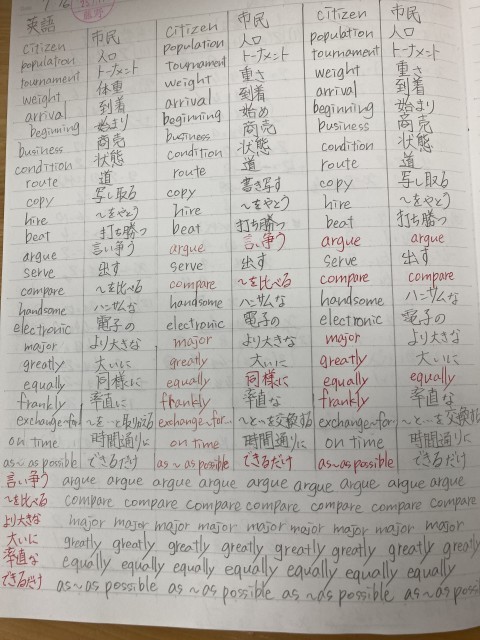 1/16
英語
citizen 市民 citizen 市民 citizen 市民
population 人口 population 人口 population 人口
tournament トーナメント tournament トーナメント tournament トーナメント
weight 体重 weight 重さ weight 重さ
arrival 到着 arrival 到着 arrival 到着
beginning 始まり beginning 始め beginning 始まり
business 商売 business 商売 business 商売
condition 状態 condition 状態 condition 状態
route 道 route 道 route 道
copy 写し取る copy 書き写す copy 写し取る
hire 〜をやとう hire 〜をやとう hire 〜をやとう
beat 打ち勝つ beat 打ち勝つ beat 打ち勝つ
argue 言い争う argue 言い争う argue argue
serve 出す serve 出す serve 出す
compare 〜を比べる compare 〜を比べる compare compare
handsome ハンサムな handsome ハンサムな handsome ハンサムな
electronic 電子の electronic 電子の electronic 電子の
major より大きな major より大きな major より大きな
greatly 大いに greatly 大いに greatly 大いに
equally 同様に equally 同様に equally equally
frankly 率直に frankly 率直な frankly 率直な
exchange〜for… exchange〜for… 〜と…を交換する exchange〜for… 〜と…を交換
on time 時間通りに on time 時間通りに on time 時間通りに
as〜as possible できるだけ as〜as possible できるだけ as〜as possible できるだけ
言い争う argue argue argue argue argue argue argue argue argue
〜を比べる compare compare compare compare compare compare compare
より大きな major major major major major major major major major
大いに greatly greatly greatly greatly greatly greatly greatly greatly
率直な equally equally equally equally equally equally equally
できるだけ as〜as possible as〜as possible as〜as possible as〜as pos